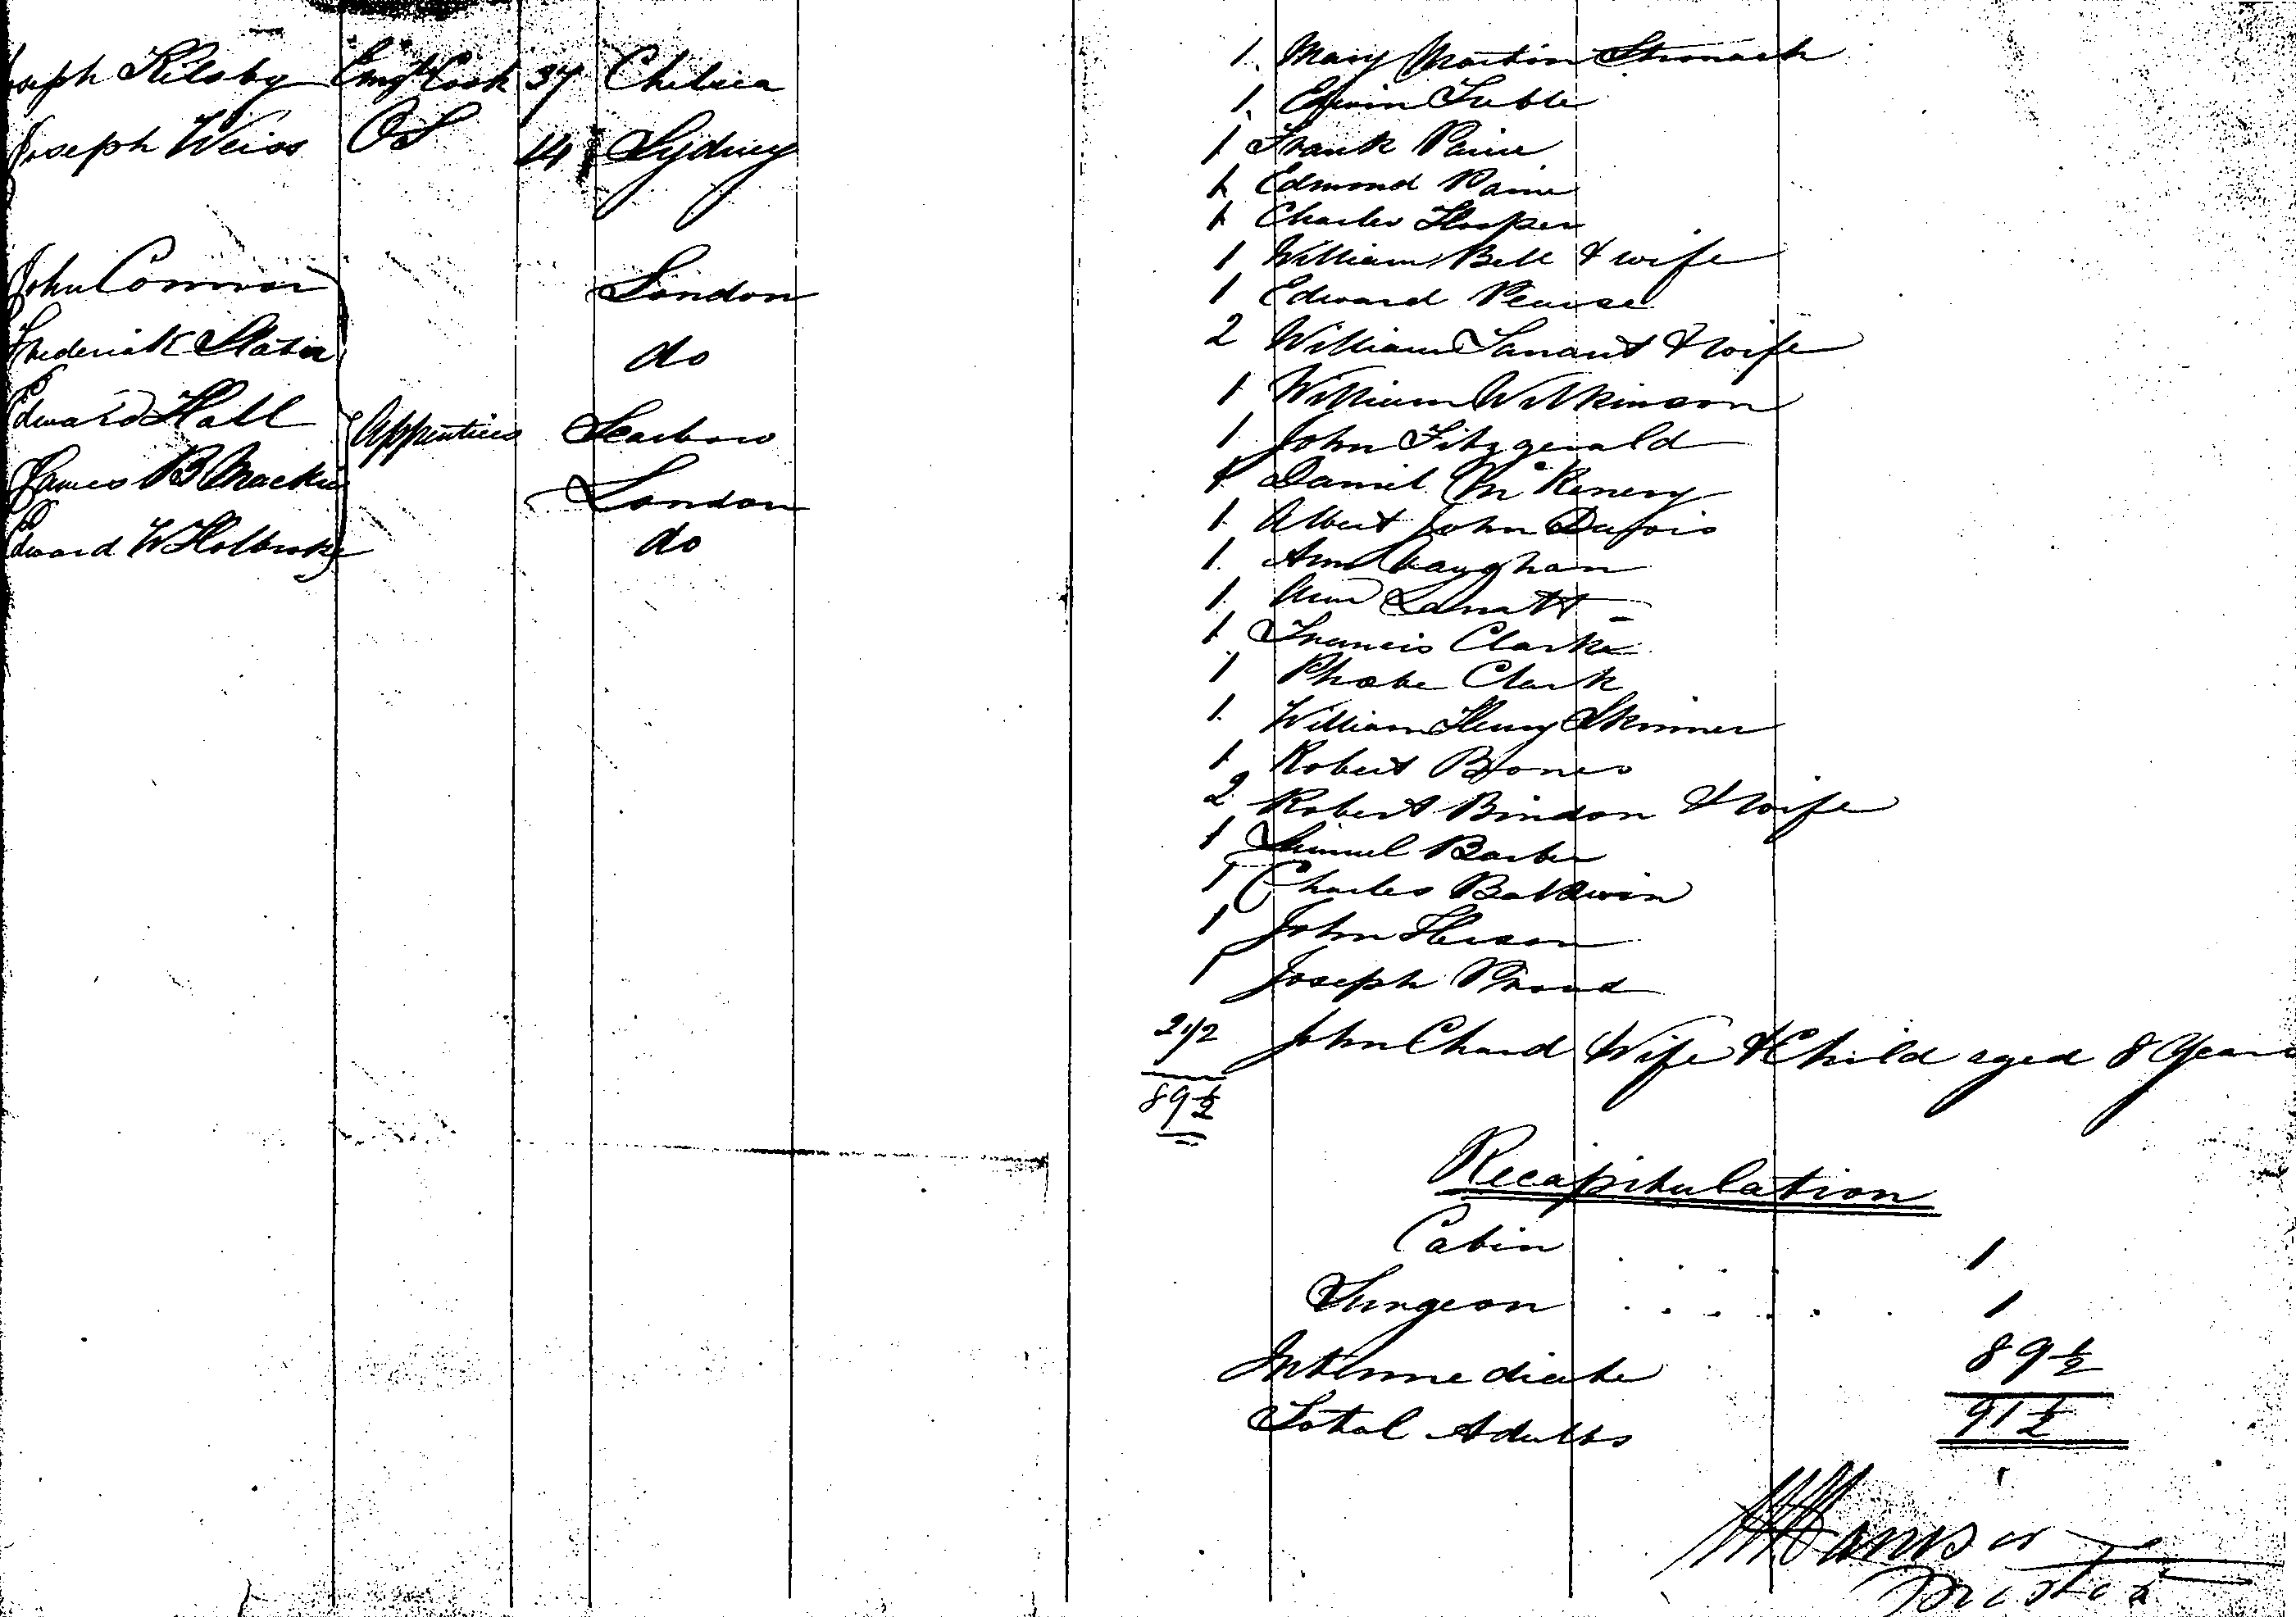 Joseph Kilsby Emgt Cook 37 Chelsea
Joseph Weiss OS 14 Sydney
John Connor London
Frederick Slater do
Edward Hall Apprentices Scarboro
James B Mackie London
Edward W Holbroke do
1. Mary Martin Stronach
1. Edwin Tuble
1 Frank Paine
1 Edmond Paine
1 Charles Hooper
1 William Bell & wife
1 Edward Pearse
2 William Tanant & wife
1 William Wilkinson
1 John Fitzgerald
1 Daniel McKenery
1. Albert John Dufois
1. Ann Vaughan
1. Ann Lamatt
1. Francis Clarke
1 Phoebe Clark
1. William Henry Skinner
1 Robert Bones
2. Robert Bindon & wife
1 Samuel Barber
1 Charles Baldwin
1 John Herson
1 Joseph Proud
2 1/2 John Chard Wife & Child aged 8 Years
89 1/2
Recapitulation
Cabin . . . . 1
Surgeon . . . . . . 1
Intermediate 89 1/2
Total Adults 91 1/2
Master